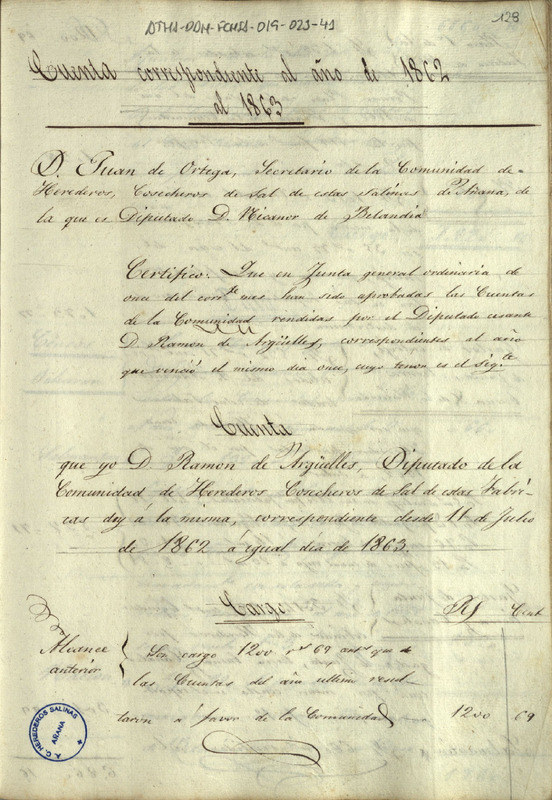 ATHA-DAH-FCHSA-019-023-41
129
Cuenta correspondiente al año de 1862
al 1863
D. Juan de Ortega, Secretario de la Comunidad de
Herederos, Cosecheros de Sal de estas Salinas de Añana, de
la que es Diputado D. Nicanor de Belandia
Certifico: Que en Junta general ordinaria de
once del corr.te mes han sido aprobadas las Cuentas
de la Comunidad rendidas por el Diputado cesante
D. Ramon de Argüelles, correspondientes al año
que venció el mismo dia once, cuyo tenor es el sig.te
Cuenta
que yo D. Ramon de Argüelles, Diputado de la
Comunidad de Herederos Cosecheros de Sal de estas Fábri-
cas doy á la misma, correspondiente desde 11 de Julio
de 1862 á igual dia de 1863.
Cargo
Rs Cent
Alcance
anterior
Son cargo 1200 rs 69 que de
las Cuentas del año último resul-
taron a favor de la Comunidad
1200 69
A. C. HEREDEROS SALINAS
AÑANA